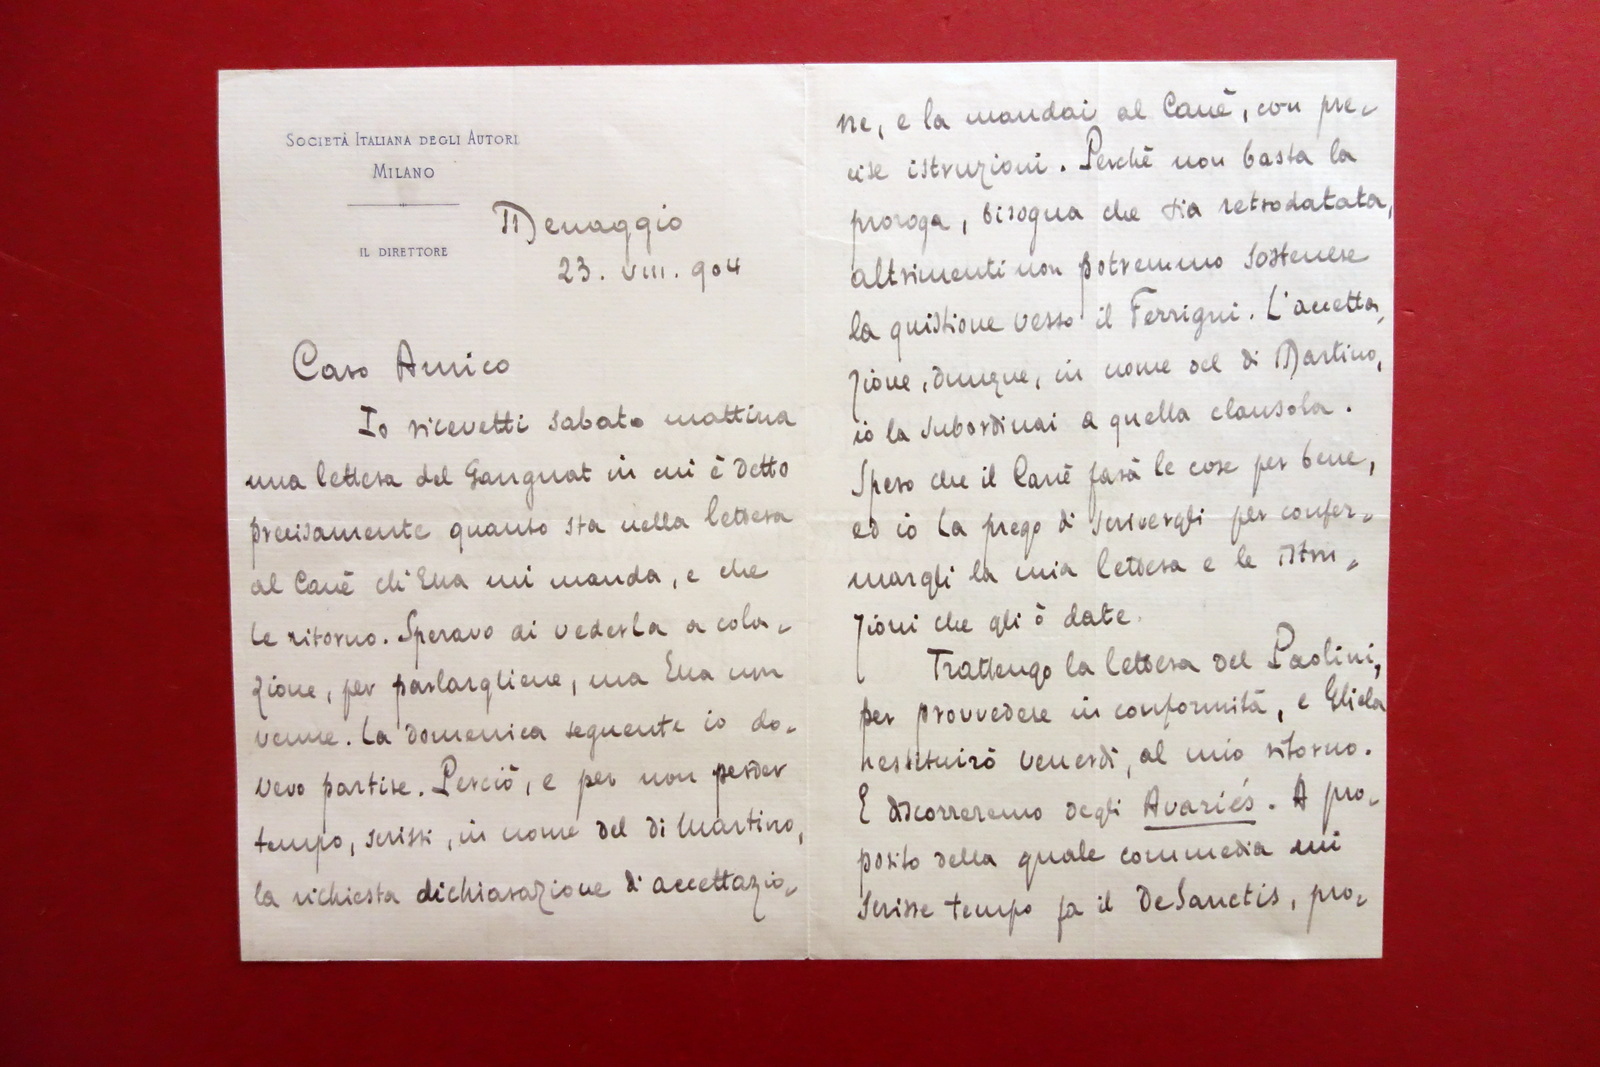 SOCIETÀ ITALIANA DEGLI AUTORI
MILANO
IL DIRETTORE
Menaggio
23. VIII. 904
Caro Amico
Io ricevetti sabato mattina
una lettera del Gangnat in cui è detto
precisamente quanto sta nella lettera
al Cavè ch'Ella mi manda, e che
le ritorno. Speravo di vederLa a cola-
zione, per parlargliene, ma Ella non
venne. La domenica seguente io do-
vevo partire. Perciò, e per non perder
tempo, scrissi, in nome del di Martino,
la richiesta dichiarazione di accettazio-
ne, e la mandai al Cavè, con pre-
cise istruzioni. Perchè non basta la
proroga, bisogna che sia retrodatata,
altrimenti non potremmo sostenere
la quistione verso il Ferrigni. L'accetta-
zione, dunque, in nome del di Martino,
io la subordinai a quella clausola.
Spero che il Cavè farà le cose per bene,
ed io La prego di scrivergli per confer-
margli la mia lettera e le istru-
zioni che gli ò date.
Trattengo la lettera del Paolini,
per provvedere in conformità, e Gliela
restituirò venerdì, al mio ritorno.
E discorreremo degli Avariés. A pro-
posito della quale commedia mi
scrisse tempo fa il De Sanctis, pro-